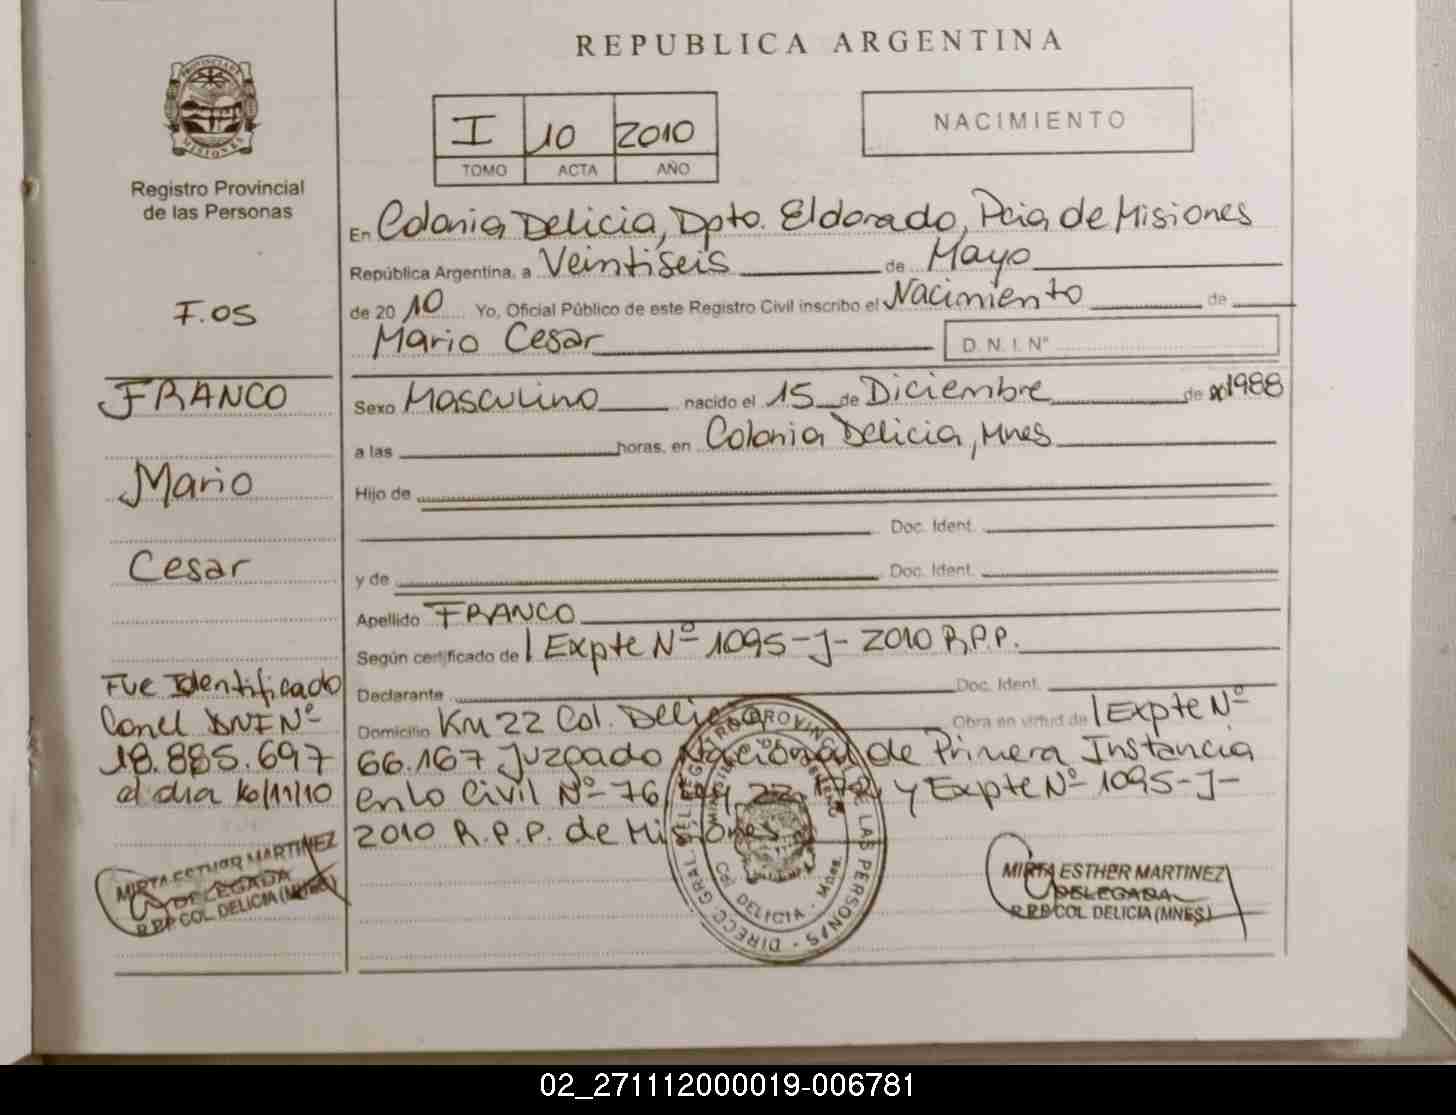 REPUBLICA ARGENTINA
PROVINCIA DE
MISIONES
Registro Provincial
de las Personas
I 10 2010
TOMO ACTA AÑO
NACIMIENTO
En Colonia Delicia, Dpto. Eldorado, Pcia de Misiones
República Argentina, a Veintiseis de Mayo
F.05
de 2010 Yo, Oficial Público de este Registro Civil inscribo el Nacimiento de
Mario Cesar D. N. I. N°
FRANCO
Mario
Cesar
Sexo Masculino nacido el 15 de Diciembre de 1988
a las horas, en Colonia Delicia, Mnes
Hijo de
Doc. Ident.
y de Doc. Ident.
Apellido FRANCO
Según certificado de Expte Nº 1095-J- 2010 R.P.P.
Declarante Doc. Ident.
Domicilio Km 22 Col. Delicia Obra en virtud de Expte Nº
66.167 Juzgado Nacional de Primera Instancia
en lo Civil Nº 76 y Expte Nº 1095-J-
2010 R.P.P. de Misiones
Fue Identificado
Con el DNI Nº
18.885.697
el dia 16/11/10
MIRTA ESTHER MARTINEZ
DELEGADA
R.P.P COL. DELICIA (MNES)
DIRECC. GRAL. DEL REGISTRO PROVINCIAL DE LAS PERSONAS
DELICIA - Mnes.
MIRTA ESTHER MARTINEZ
DELEGADA
R.P.P COL. DELICIA (MNES)
02_271112000019-006781